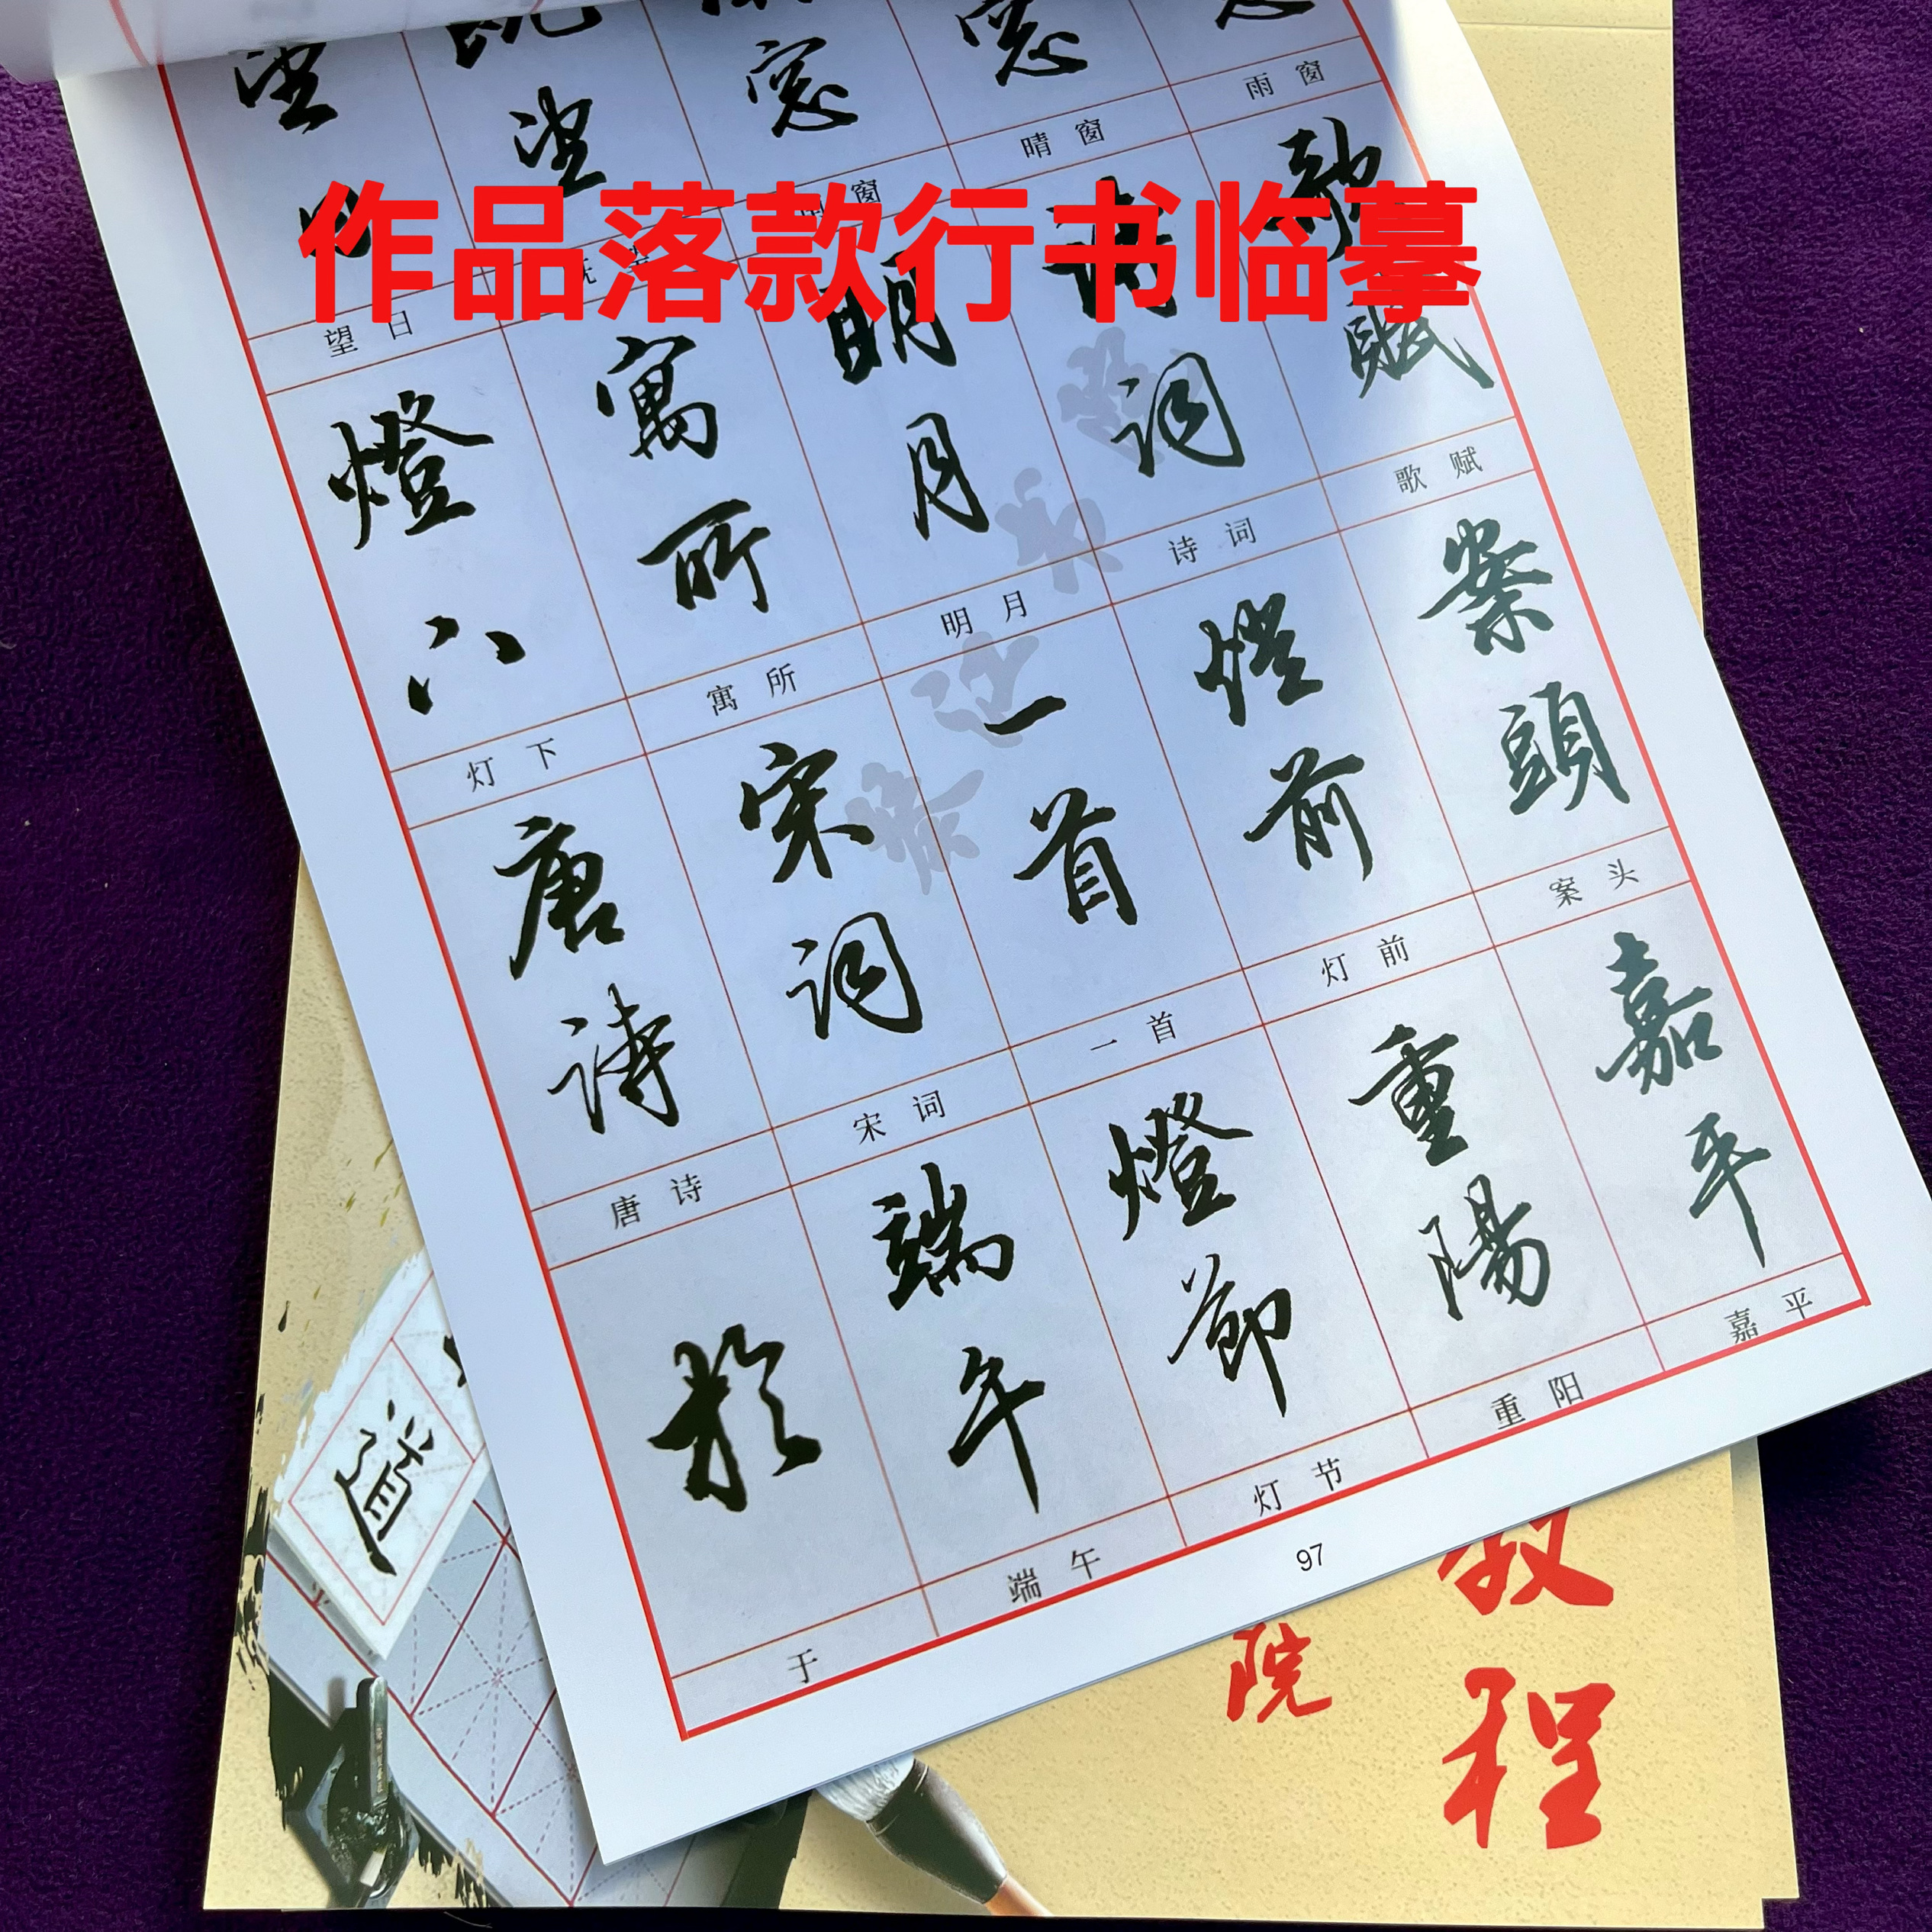 作品落款行书临摹
望日
既望
窓
窓
望日
既望
窗
晴窗
雨窗
燈下
寓所
明月
詩詞
歌賦
灯下
寓所
明月
诗词
歌赋
唐詩
宋詞
一首
燈前
案頭
唐诗
宋词
一首
灯前
案头
於
端午
燈節
重陽
嘉平
于
端午
灯节
重阳
嘉平
97
道
教程
院